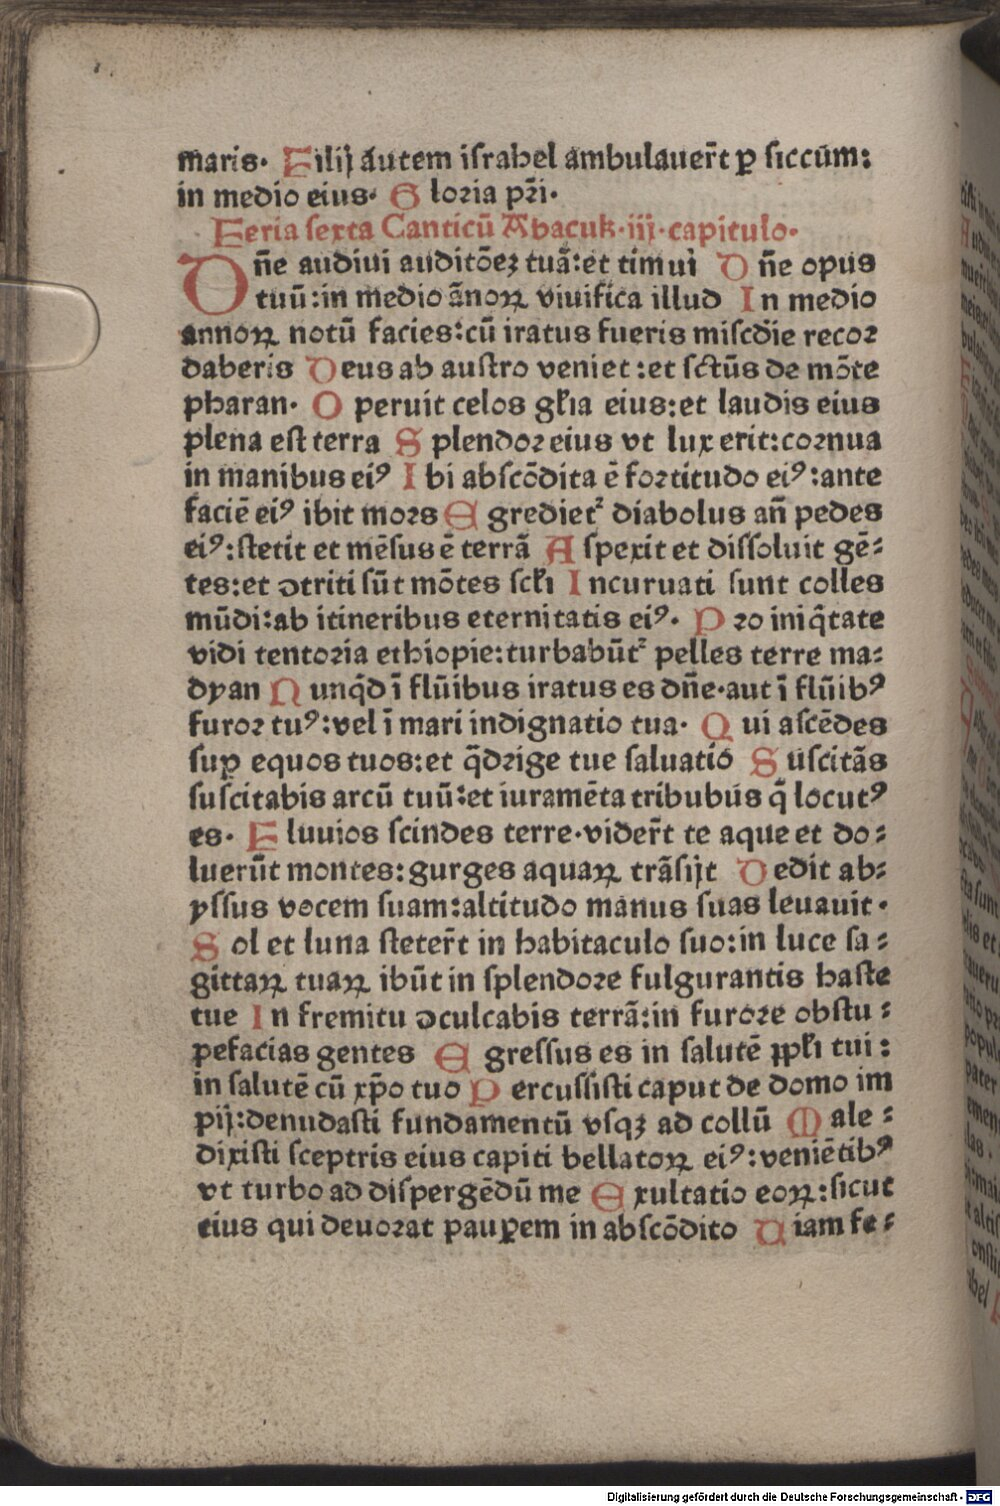 maris. Filij autem israhel ambulauer̃t ꝑ siccūm:
in medio eius. Gloria pr̃i.
Feria sexta Canticū Abacuk.iij.capitulo.
Dñe audiui auditōeꝫ tuā:et timui Dñe opus
tuū:in medio ānoꝝ viuifica illud In medio
annoꝝ notū facies:cū iratus fueris misc̄die recor
daberis Deus ab austro veniet:et sctūs de mōte
pharan. Operuit celos gl̄ia eius:et laudis eius
plena est terra Splendor eius vt lux erit:cornua
in manibus eiꝰ Ibi abscōdita ē fortitudo eiꝰ:ante
faciē eiꝰ ibit mors Egredietᷣ diabolus añ pedes
eiꝰ:stetit et mēsus ē terrā Aspexit et dissoluit gē-
tes:et ↄtriti sūt mōtes scl̄i Incuruati sunt colles
mūdi:ab itineribus eternitatis eiꝰ. Pro iniq̄tate
vidi tentoria ethiopie:turbabūtᷣ pelles terre ma-
dyan Nunq̄d ī flūibus iratus es dñe.aut ī flūibꝰ
furor tuꝰ:vel ī mari indignatio tua. Qui ascēdes
suꝑ equos tuos:et q̄drige tue saluatio Suscitās
suscitabis arcū tuū:et iuramēta tribubus q̄ locutꝰ
es. Fluuios scindes terre.vider̃t te aque et do-
luerūt montes:gurges aquaꝝ trāsijt Dedit ab-
yssus vocem suam:altitudo manus suas leuauit.
Sol et luna steter̃t in habitaculo suo:in luce sa-
gittaꝝ tuaꝝ ibūt in splendore fulgurantis haste
tue In fremitu ↄculcabis terrā:in furore obstu-
pefacias gentes Egressus es in salutē ppl̄i tui:
in salutē cū xp̄o tuo Percussisti caput de domo im
pij:denudasti fundamentū vsqꝫ ad collū Male-
dixisti sceptris eius capiti bellatoꝝ eiꝰ:veniētibꝰ
vt turbo ad dispergēdū me Exultatio eoꝝ:sicut
eius qui deuorat pauꝑem in abscōdito Uiam fe-
Digitalisierung gefördert durch die Deutsche Forschungsgemeinschaft - DFG